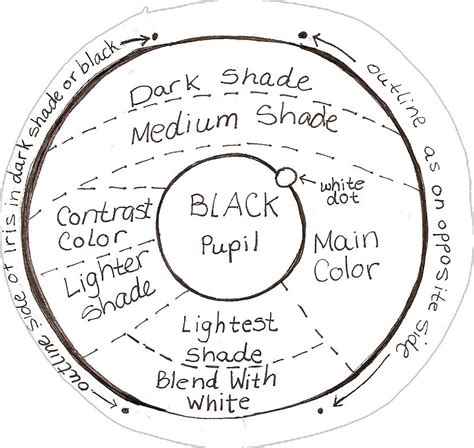 outline side of iris in dark shade or black
outline as on opposite side
Dark Shade
Medium Shade
white
dot
BLACK
Pupil
Contrast
Color
Lighter
Shade
Main
Color
Lightest
Shade
Blend With
White